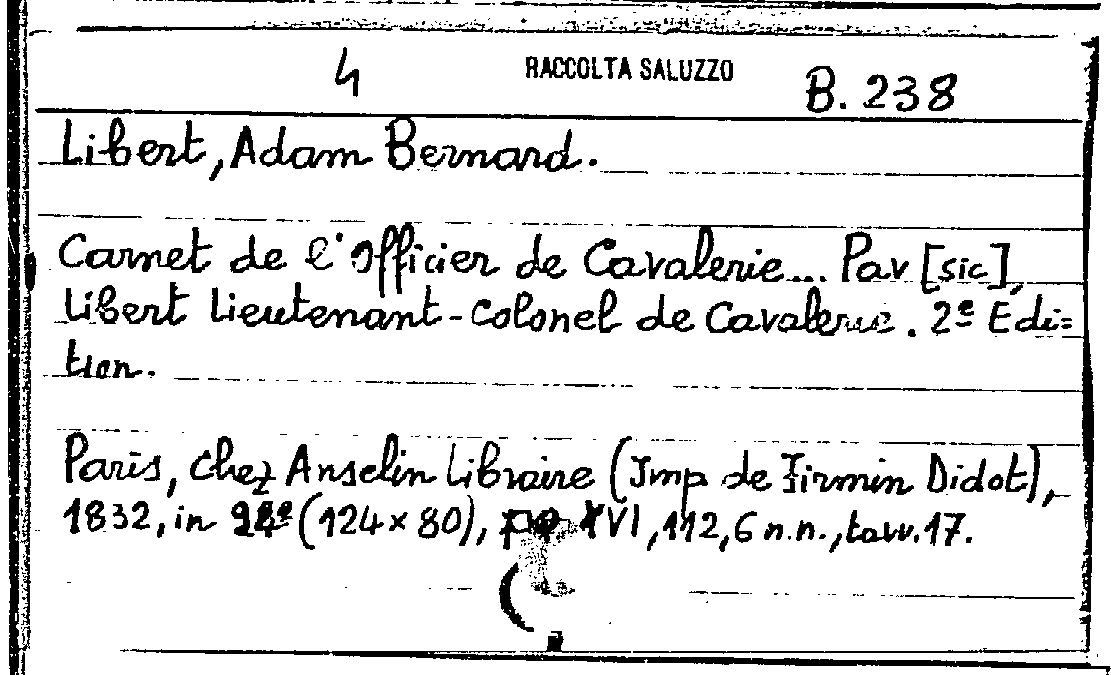 4 RACCOLTA SALUZZO B. 238
Libert, Adam Bernard.
Carnet de l'Officier de Cavalerie... Par [sic],
Libert Lieutenant-Colonel de Cavalerie. 2e Edi=
tion.
Paris, chez Anselin Libraire (Imp de Firmin Didot),
1832, in 24º (124 x 80), pp XVI, 112, 6 n.n., tavv. 17.